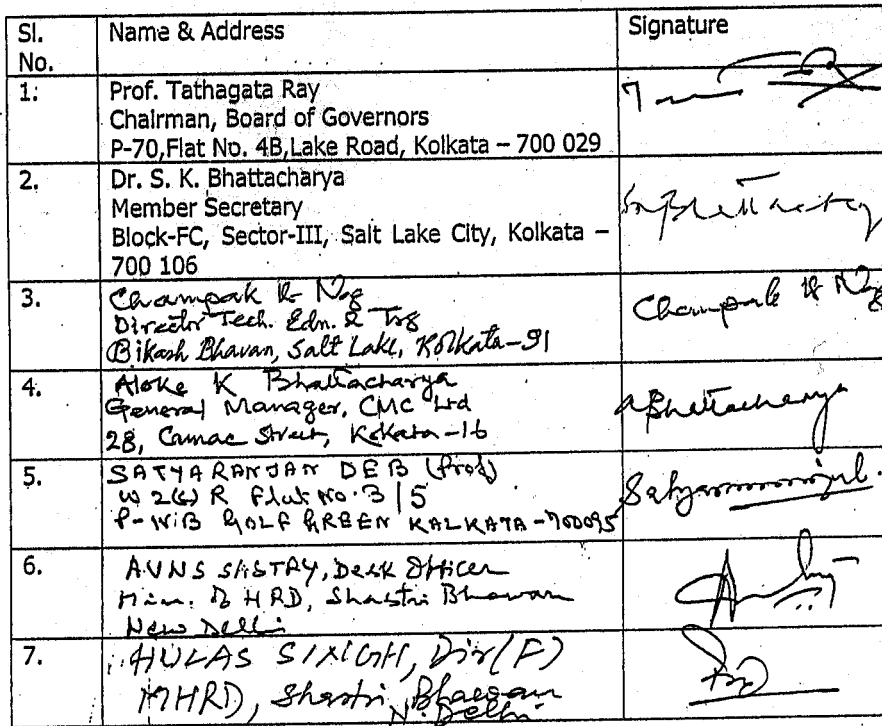 Sl. No.
Name & Address
Signature
1.
Prof. Tathagata Ray
Chairman, Board of Governors
P-70,Flat No. 4B,Lake Road, Kolkata – 700 029
2.
Dr. S. K. Bhattacharya
Member Secretary
Block-FC, Sector-III, Salt Lake City, Kolkata –
700 106
S K Bhattacharya
3.
Champak K Nag
Director Tech. Edn. & Trg
Bikash Bhavan, Salt Lake, Kolkata-91
Champak K Nag
4.
Aloke K Bhattacharya
General Manager, CMC Ltd
28, Camac Street, Kolkata-16
A Bhattacharya
5.
SATYARANJAN DEB (Prof)
Flat No. 3/5
GOLF GREEN KALKATA-700095
6.
AVNS SASTRY, Desk Officer
Min. of HRD, Shastri Bhawan
New Delhi
7.
HULAS SINGH, Dir(F)
MHRD, Shastri Bhawan
N. Delhi